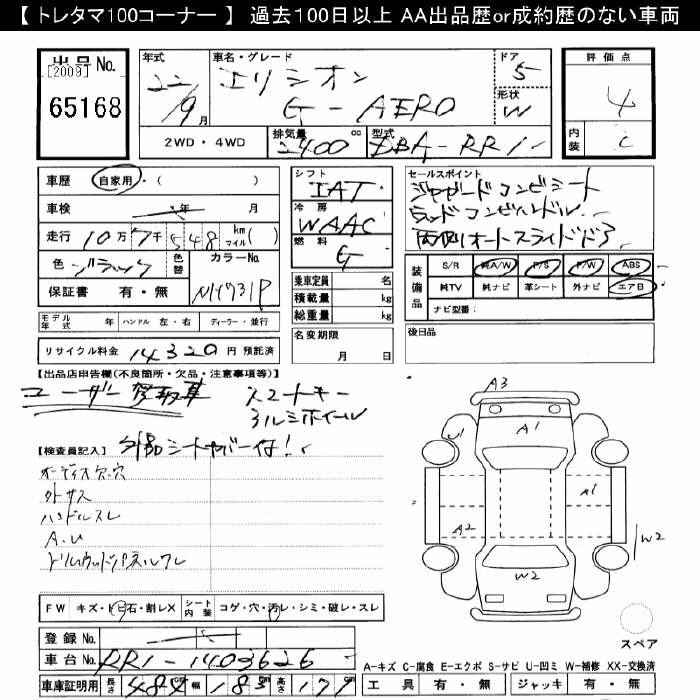 【 トレタマ100コーナー 】 過去100日以上 AA出品歴or成約歴のない車両
出品No.
【2009】
65168
年式 22 9月
車名・グレード エリシオン
G-AERO
ドア 5
形状 W
評価点 4
内装 C
2WD・4WD
排気量 2400 cc
型式 DBA-RR1
車歴 自家用・( )
車検 年 月
走行 10万7千548 km マイル( )
色 ブラック 色替 カラーNo.
保証書 有・無 NH731P
シフト IAT
冷房 WAAC
燃料 G
乗車定員 名
積載量 kg
総重量 kg
名変期限 月 日
セールスポイント
コンビシート
ウッドコンビハンドル
両側オートスライドドア
装備品 S/R 純A/W P/S P/W ABS
純TV 純ナビ 革シート 外ナビ エアB
ナビ型番:
モデル年式 年 ハンドル 左・右 ディーラー・並行
後日品
リサイクル料金 14320 円 預託済
【出品店申告欄(不良箇所・欠品・注意事項等)】
ユーザー買取車 スマートキー
アルミホイール
外品シートカバー付!
【検査員記入】
オーディオ穴・穴
外サス
ハンドルスレ
A.U
A3
A1
U1
A1
A2
W2
W2
FW キズ・トビ石・割レX シート内装 コゲ・穴・汚レ・シミ・破レ・スレ
登録No.
スペア
車台No. RR1-1403626
A-キズ C-腐食 E-エクボ S-サビ U-凹ミ W-補修 XX-交換済
車庫証明用 長さ 484cm 幅 183cm 高さ 179
工具 有・無 ジャッキ 有・無